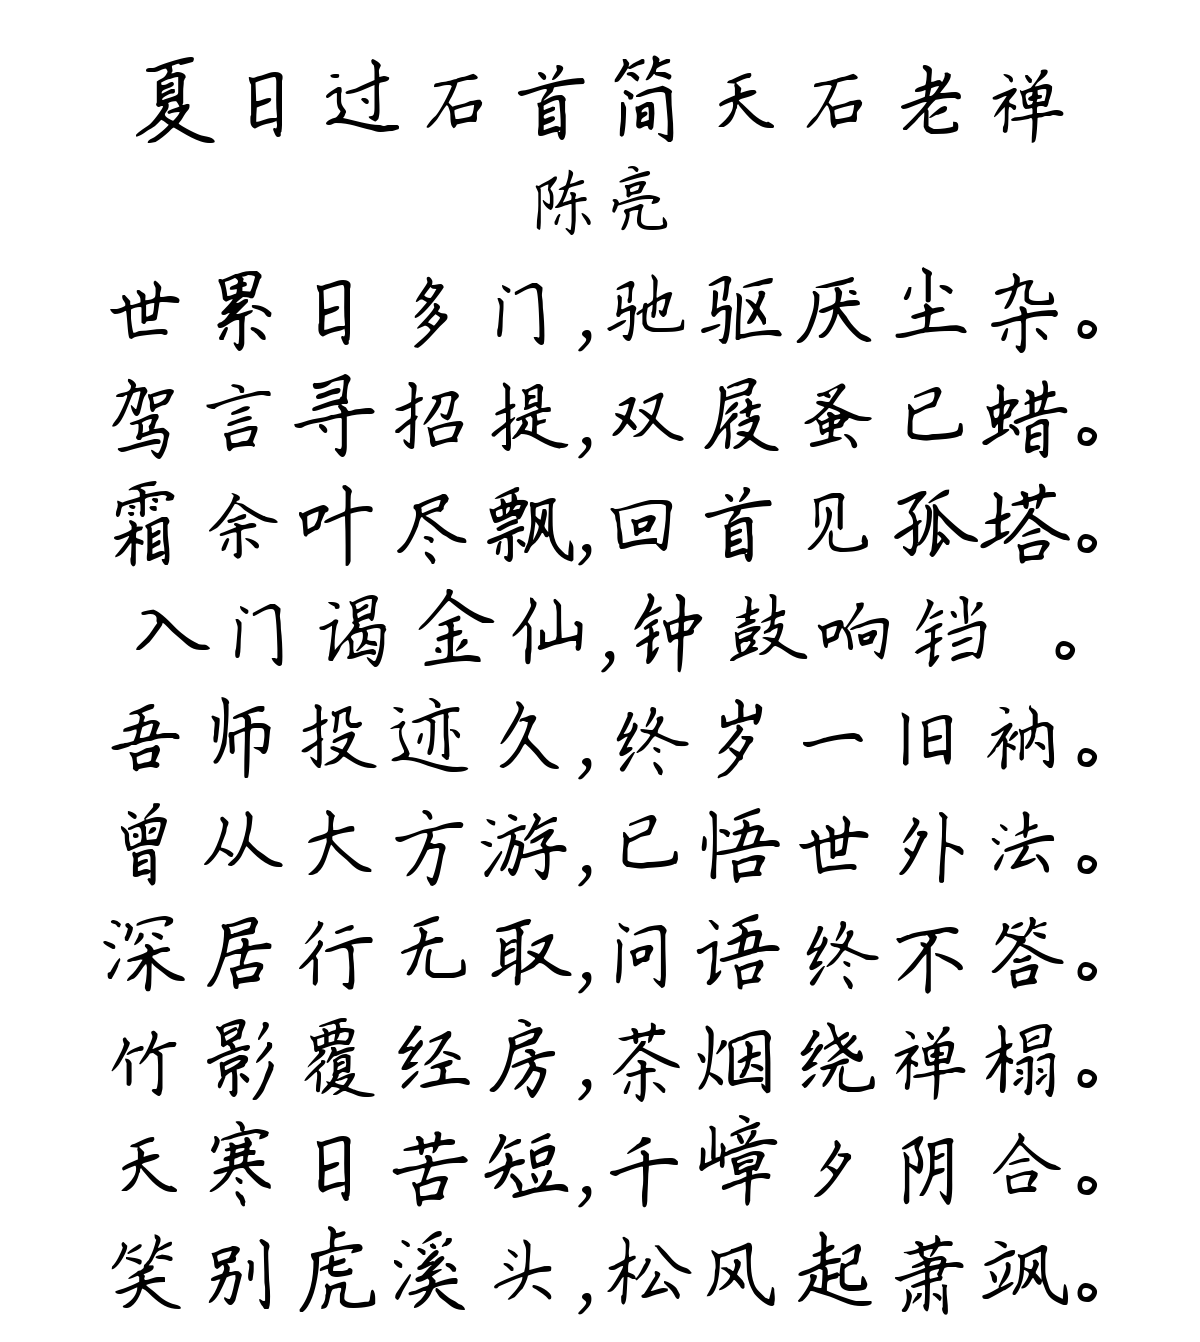 夏日过石首简天石老禅
陈亮
世累日多门,驰驱厌尘杂。
驾言寻招提,双屐蚤已蜡。
霜余叶尽飘,回首见孤塔。
入门谒金仙,钟鼓响铛 。
吾师投迹久,终岁一旧衲。
曾从大方游,已悟世外法。
深居行无取,问语终不答。
竹影覆经房,茶烟绕禅榻。
天寒日苦短,千嶂夕阴合。
笑别虎溪头,松风起萧飒。